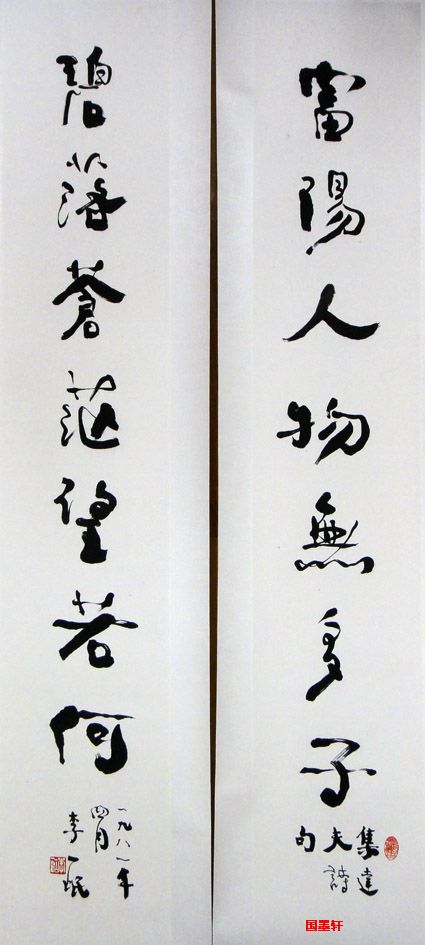 富陽人物無多子
集達
夫詩
句
碧落蒼茫望若何
一九八一年
四月
李一氓
国墨轩